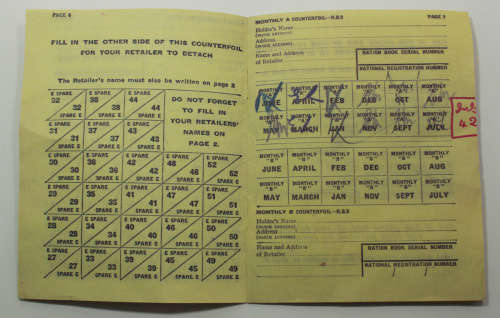 PAGE 4
FILL IN THE OTHER SIDE OF THIS COUNTERFOIL
FOR YOUR RETAILER TO DETACH
The Retailer's name must also be written on page 2
DO NOT FORGET
TO FILL IN
YOUR RETAILERS'
NAMES ON
PAGE 2.
E SPARE E SPARE E SPARE
32 38 44
32 38 44
SPARE E SPARE E SPARE E
E SPARE E SPARE E SPARE
31 37 43
31 37 43
SPARE E SPARE E SPARE E
E SPARE E SPARE E SPARE E SPARE E SPARE
30 36 42 48 52
30 36 42 48 52
SPARE E SPARE E SPARE E SPARE E SPARE E
E SPARE E SPARE E SPARE E SPARE E SPARE
29 35 41 47 51
29 35 41 47 51
SPARE E SPARE E SPARE E SPARE E SPARE E
E SPARE E SPARE E SPARE E SPARE E SPARE
28 34 40 46 50
28 34 40 46 50
SPARE E SPARE E SPARE E SPARE E SPARE E
E SPARE E SPARE E SPARE E SPARE E SPARE
27 33 39 45 49
27 33 39 45 49
SPARE E SPARE E SPARE E SPARE E SPARE E
MONTHLY A COUNTERFOIL—R.B.8 PAGE 3
Holder's Name
(BLOCK LETTERS)
Address
(BLOCK LETTERS)
Name and Address
of Retailer
RATION BOOK SERIAL NUMBER
NATIONAL REGISTRATION NUMBER
MONTHLY MONTHLY MONTHLY MONTHLY MONTHLY MONTHLY
"A" "A" "A" "A" "A" "A"
JUNE APRIL FEB DEC OCT AUG
MONTHLY MONTHLY MONTHLY MONTHLY MONTHLY MONTHLY
"A" "A" "A" "A" "A" "A"
MAY MARCH JAN NOV SEPT JULY
July
42
MONTHLY MONTHLY MONTHLY MONTHLY MONTHLY MONTHLY
"B" "B" "B" "B" "B" "B"
JUNE APRIL FEB DEC OCT AUG
MONTHLY MONTHLY MONTHLY MONTHLY MONTHLY MONTHLY
"B" "B" "B" "B" "B" "B"
MAY MARCH JAN NOV SEPT JULY
MONTHLY B COUNTERFOIL—R.B.8
Holder's Name
(BLOCK LETTERS)
Address
(BLOCK LETTERS)
Name and Address
of Retailer
RATION BOOK SERIAL NUMBER
NATIONAL REGISTRATION NUMBER